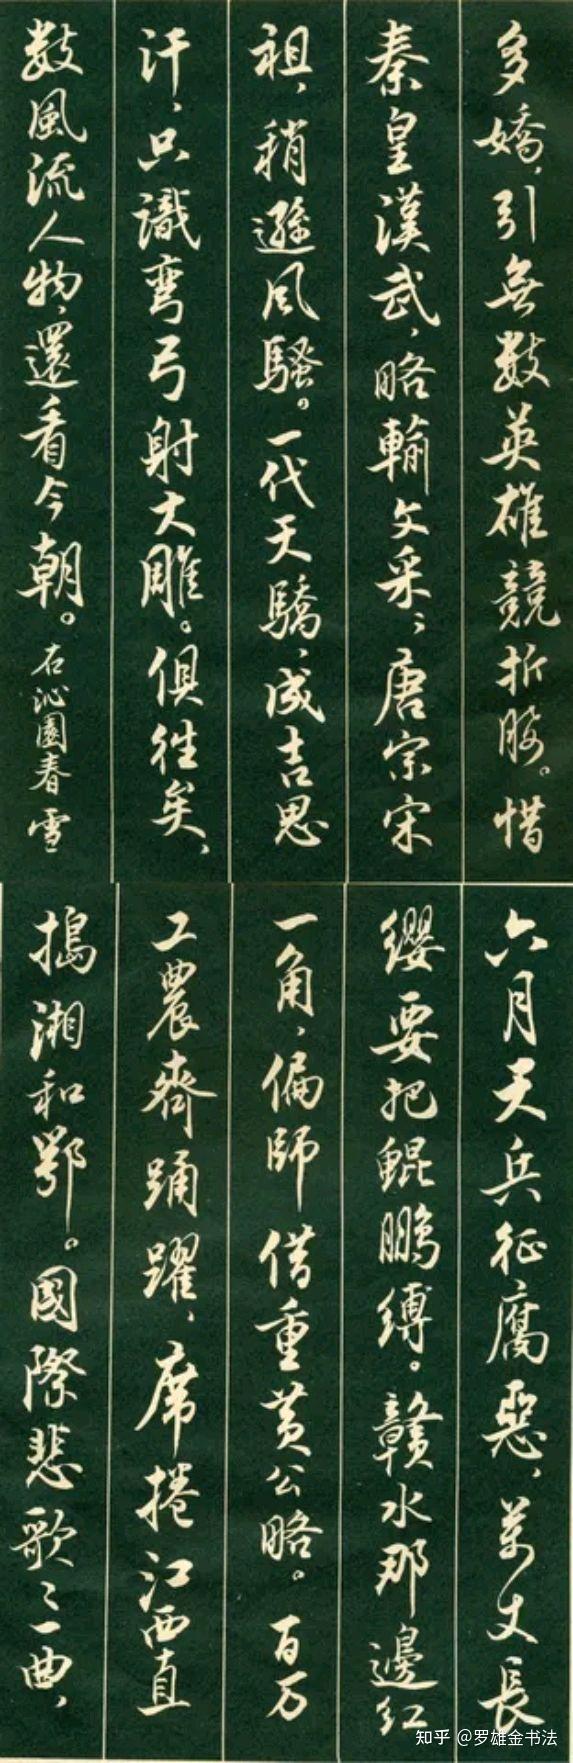 多嬌，引無數英雄競折腰。惜
秦皇漢武，略輸文采；唐宗宋
祖，稍遜風騷。一代天驕，成吉思
汗，只識彎弓射大雕。俱往矣，
數風流人物，還看今朝。右沁園春 雪
六月天兵征腐惡，萬丈長
纓要把鯤鵬縛。贛水那邊紅
一角，偏師借重黄公略。百万
工農齊踴躍，席捲江西直
搗湘和鄂。國際悲歌歌一曲，
知乎 @罗雄金书法